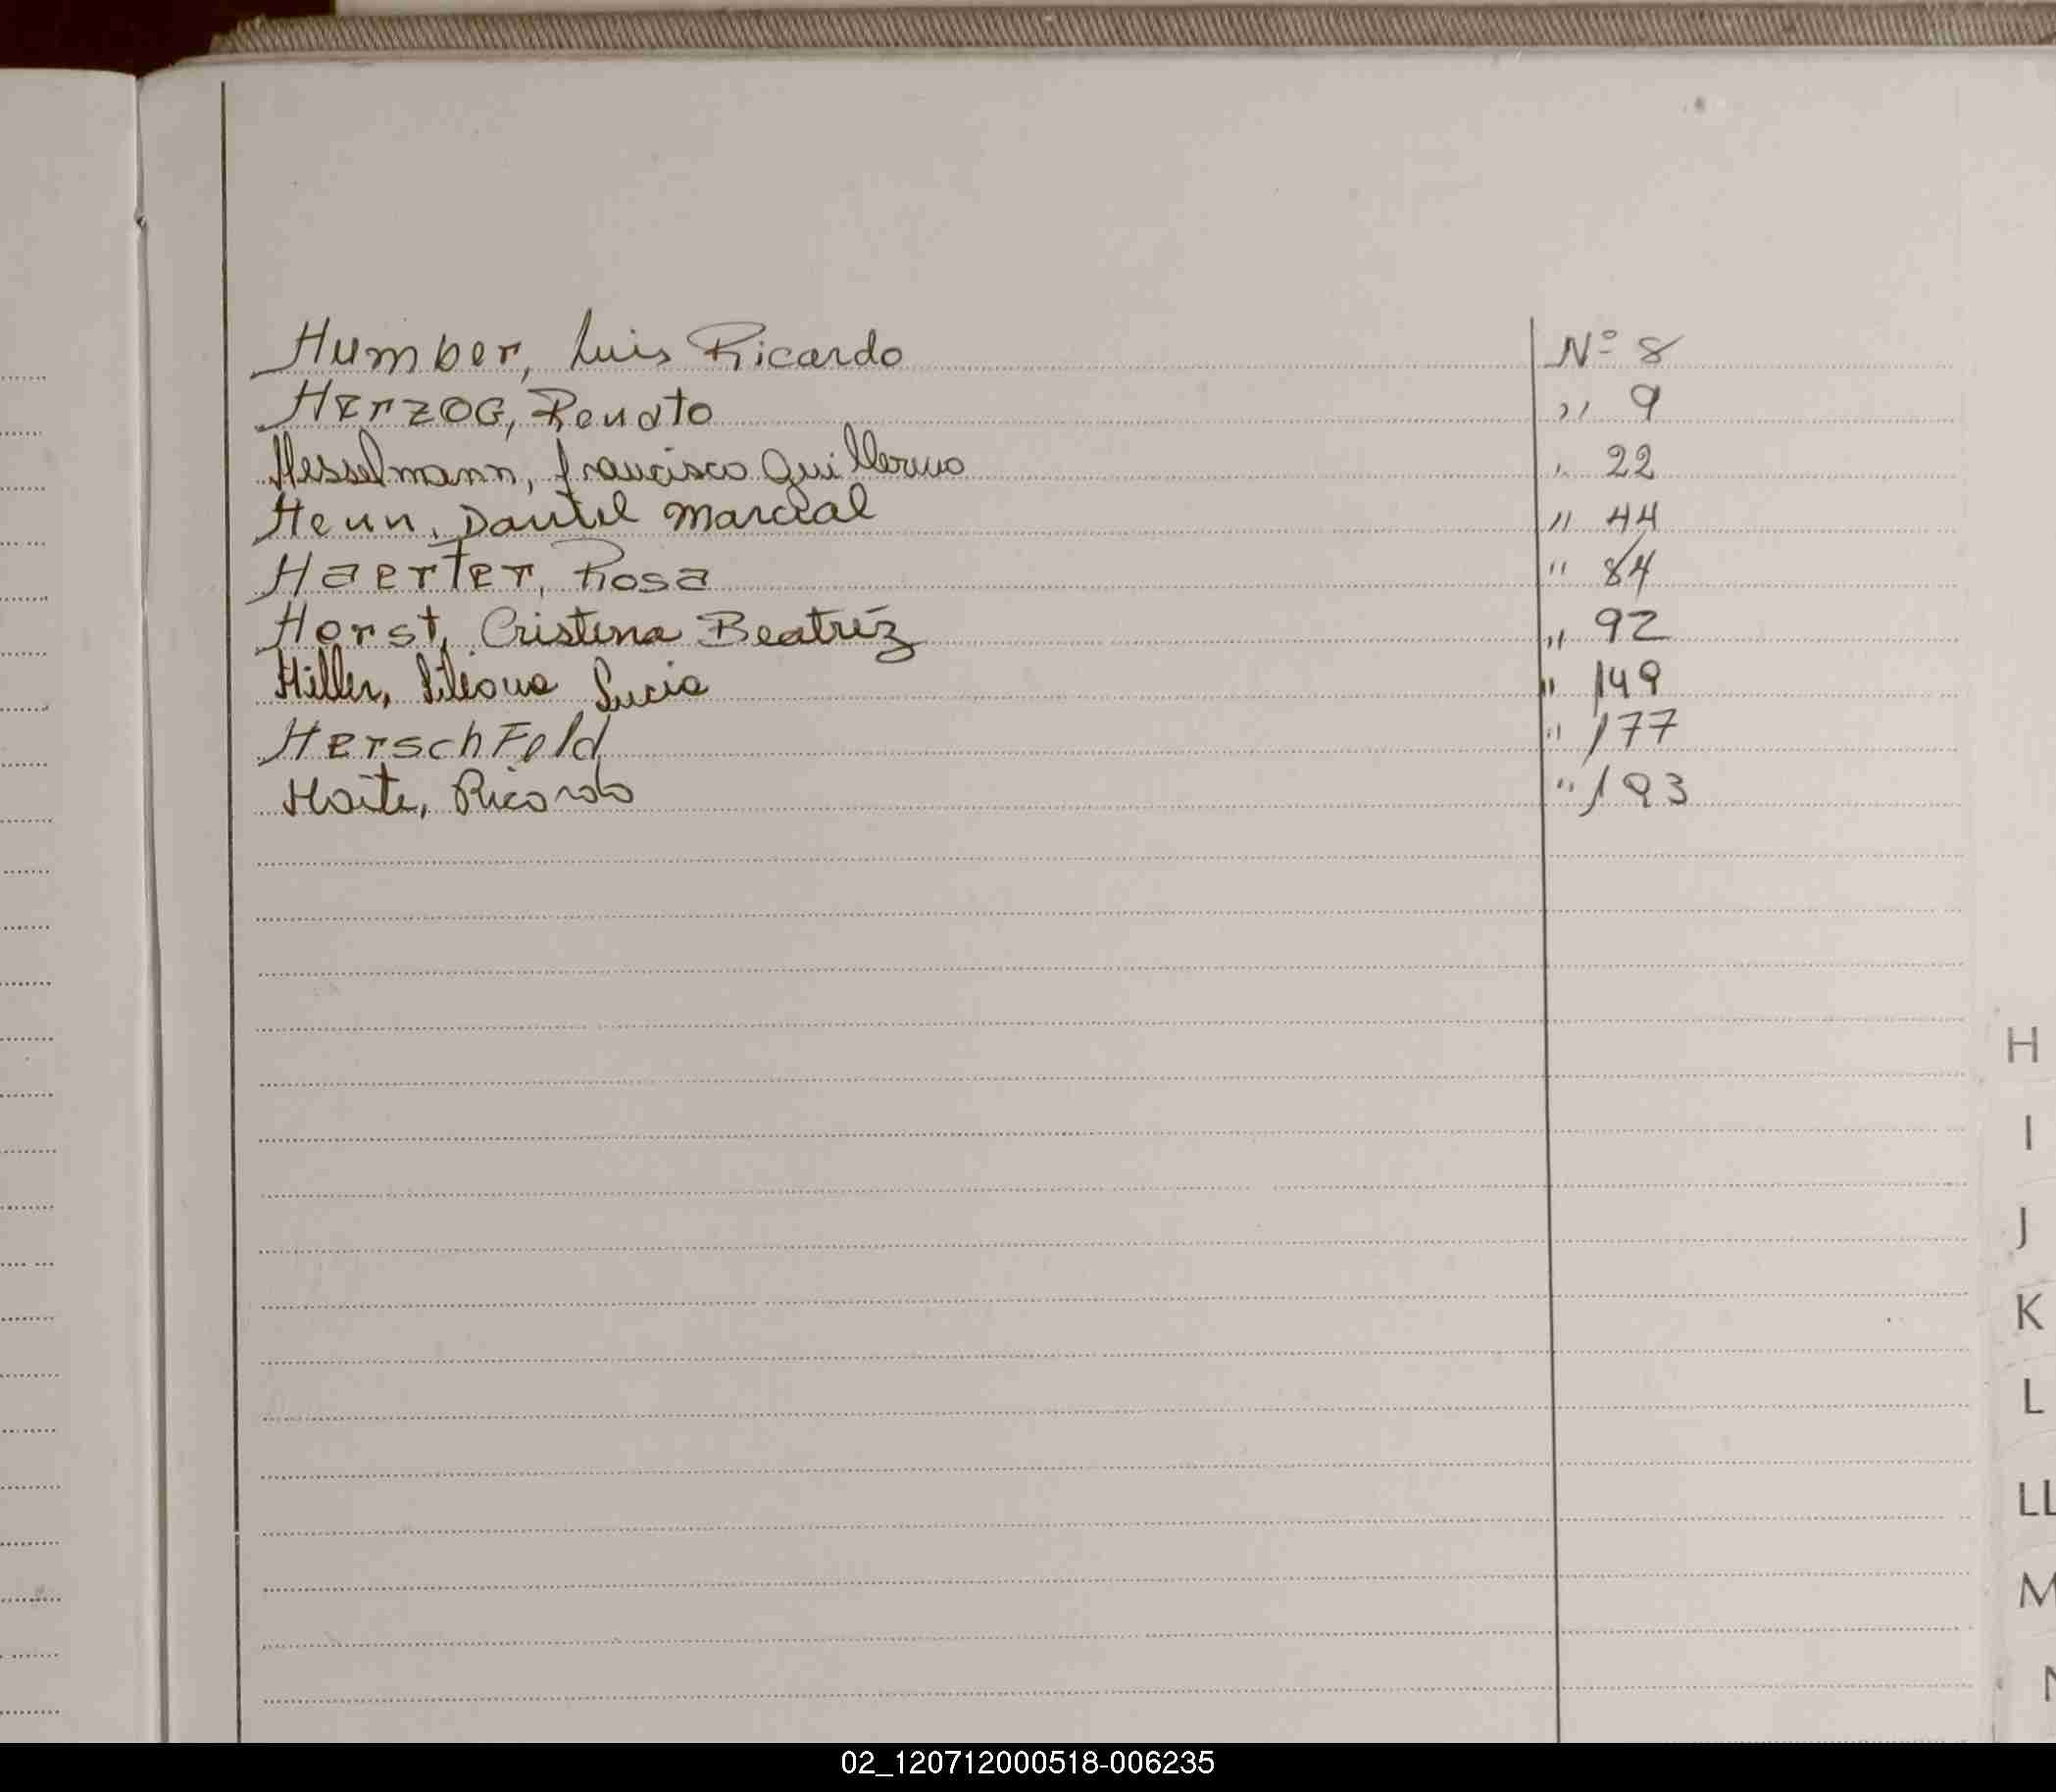 Humber, Luis Ricardo Nº 8
Herzog, Renato " 9
Hesselmann, Francisco Guillermo " 22
Henn, Daniel Marcial " 44
Haerter, Rosa " 84
Horst, Cristina Beatríz " 92
Hiller, Liliana Lucia " 149
Herschfeld " 177
Haite, Ricardo " 193
H
I
J
K
L
LL
M
N
02_120712000518-006235